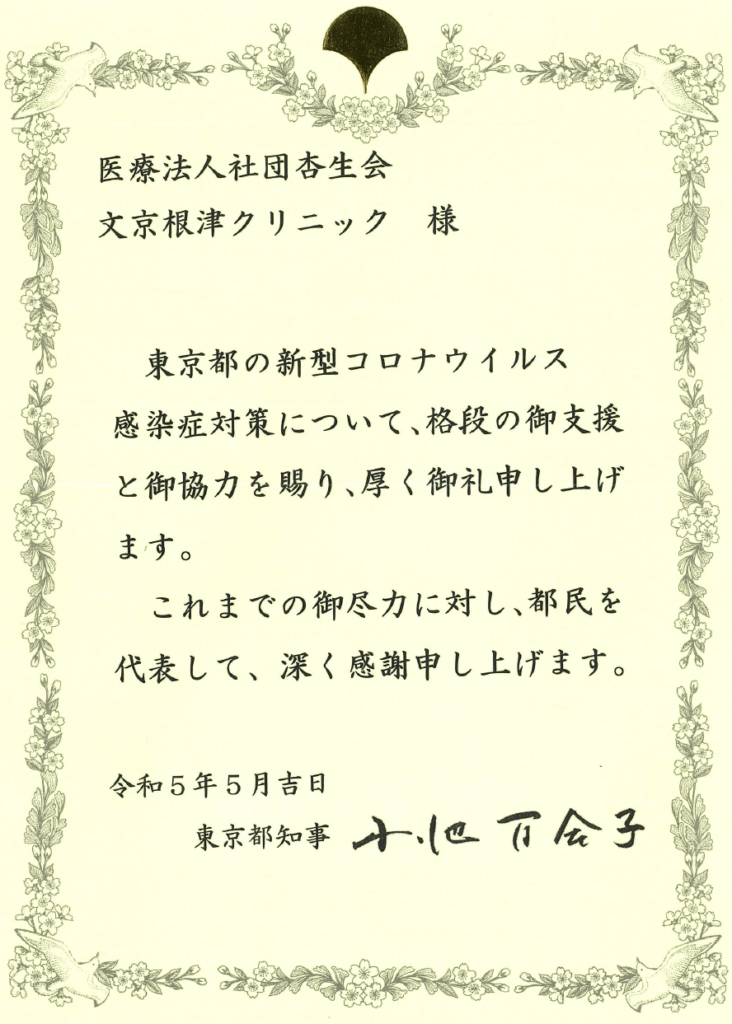 医療法人社団杏生会
文京根津クリニック　様
東京都の新型コロナウイルス
感染症対策について、格段の御支援
と御協力を賜り、厚く御礼申し上げ
ます。
これまでの御尽力に対し、都民を
代表して、深く感謝申し上げます。
令和５年５月吉日
東京都知事　小池百合子